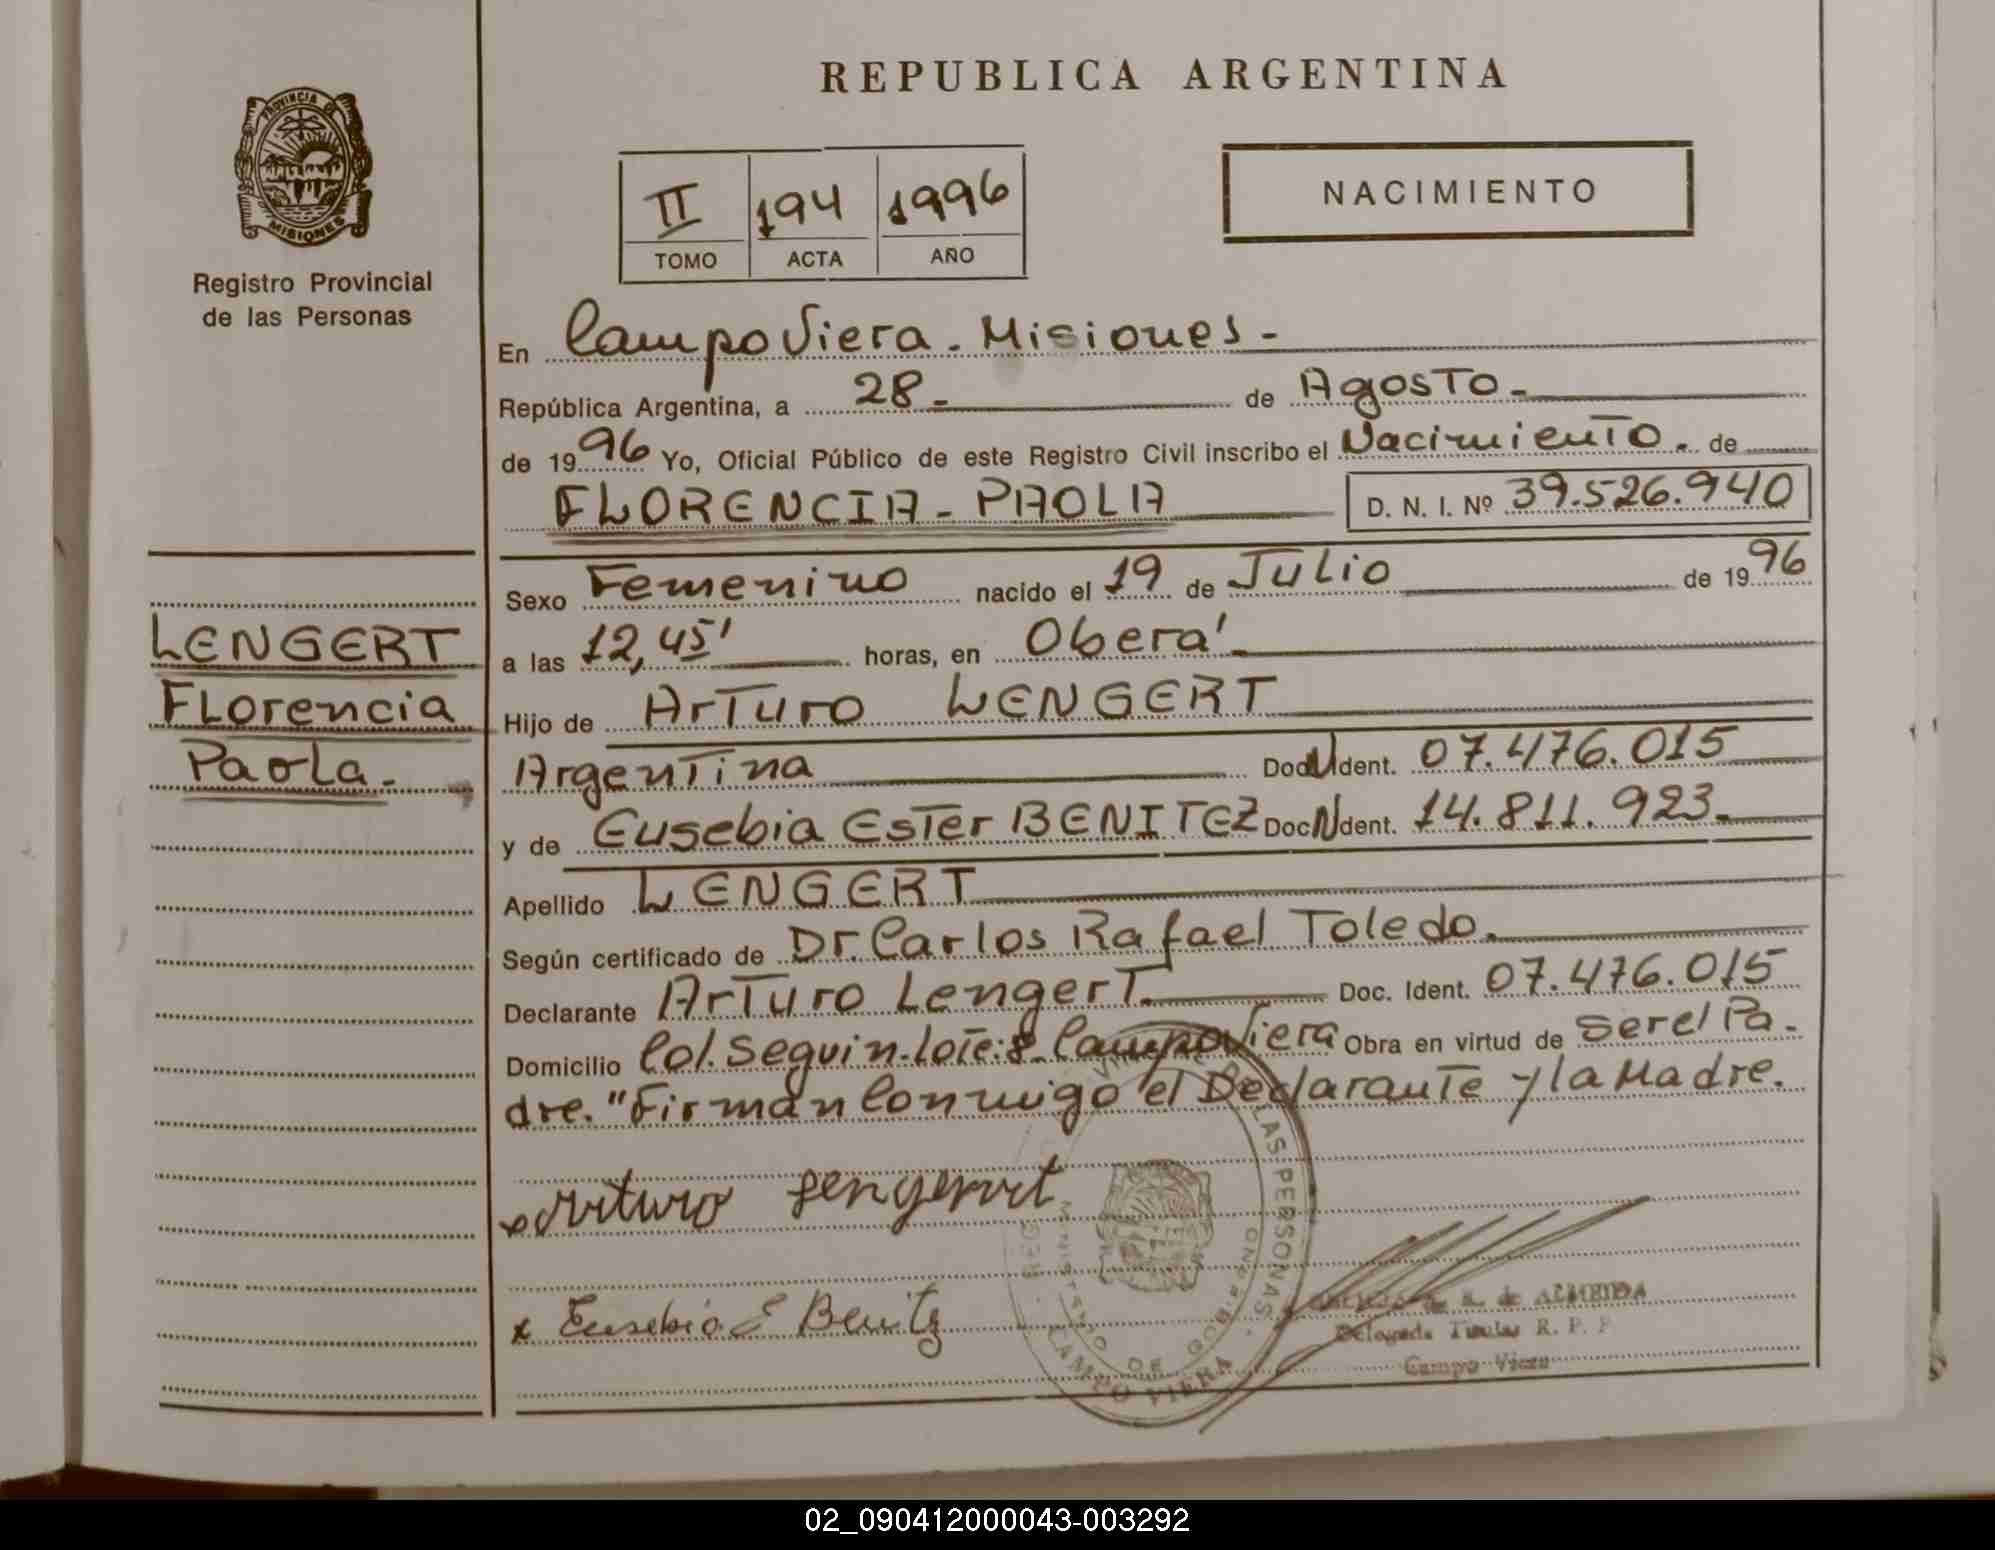 REPUBLICA ARGENTINA
PROVINCIA DE
MISIONES
Registro Provincial
de las Personas
II 194 1996
TOMO ACTA AÑO
NACIMIENTO
En Campo Viera. Misiones-
República Argentina, a 28- de Agosto-
de 1996 Yo, Oficial Público de este Registro Civil inscribo el Nacimiento. de
FLORENCIA - PAOLA D. N. I. Nº 39.526.940
Sexo Femenino nacido el 19 de Julio de 1996
LENGERT
a las 12,45' horas, en Oberá
Florencia
Hijo de Arturo LENGERT
Paola.-
Argentina Doc. Ident. 07.476.015
y de Eusebia Ester BENITEZ Doc. Ident. 14.811.923-
Apellido LENGERT
Según certificado de Dr. Carlos Rafael Toledo.
Declarante Arturo Lengert. Doc. Ident. 07.476.015
Domicilio Col. Seguin-Lote:8-Campo Viera Obra en virtud de Ser el Pa-
dre. "Firman Conmigo el Declarante y la Madre.
Arturo Lengervt
x Eusebia E Benitz
LAS PERSONAS
MINISTERIO DE GOBIERNO
CAMPO VIERA
de ALMEIDA
Delegada Titular R. P. P
Campo Viera
02_090412000043-003292